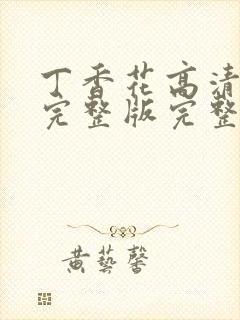 丁香花高清
完整版完整
黄藝馨